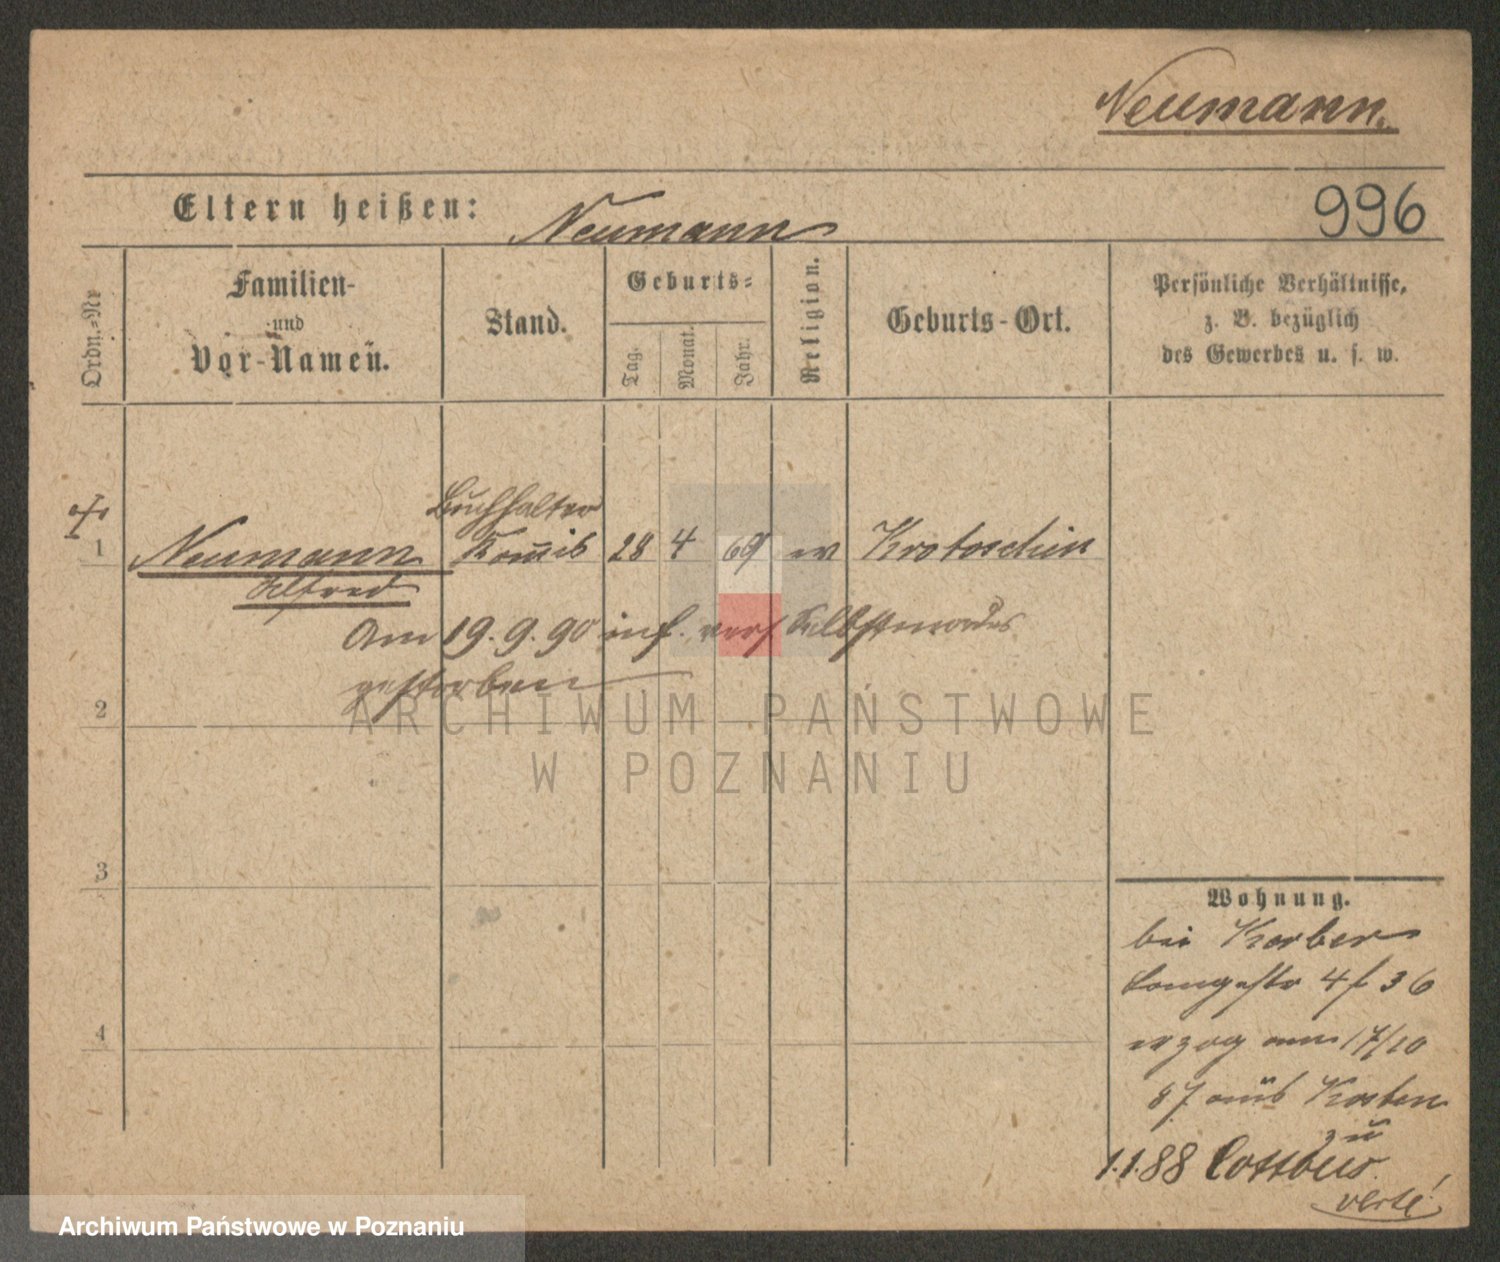 Neumann.
Eltern heißen: Neumann
996
Ordn.-Nr
Familien-
und
Vor-Namen.
Stand.
Geburts-
Tag.
Monat.
Jahr.
Religion.
Geburts-Ort.
Persönliche Verhältnisse,
z. B. bezüglich
des Gewerbes u. s. w.
Buchhalter
1 Neumann Kom̄is 28 4 69 ev Krotoschin
Alfred
Am 19. 9. 90 inf. vers Selbstmordes
gestorben
2
ARCHIWUM PAŃSTWOWE
W POZNANIU
3
4
Wohnung.
bei Karber
Langestr 4 36
zog am 17/10
87 aus Kosten
zu
1.1.88 Cottbus.
verte!
Archiwum Państwowe w Poznaniu